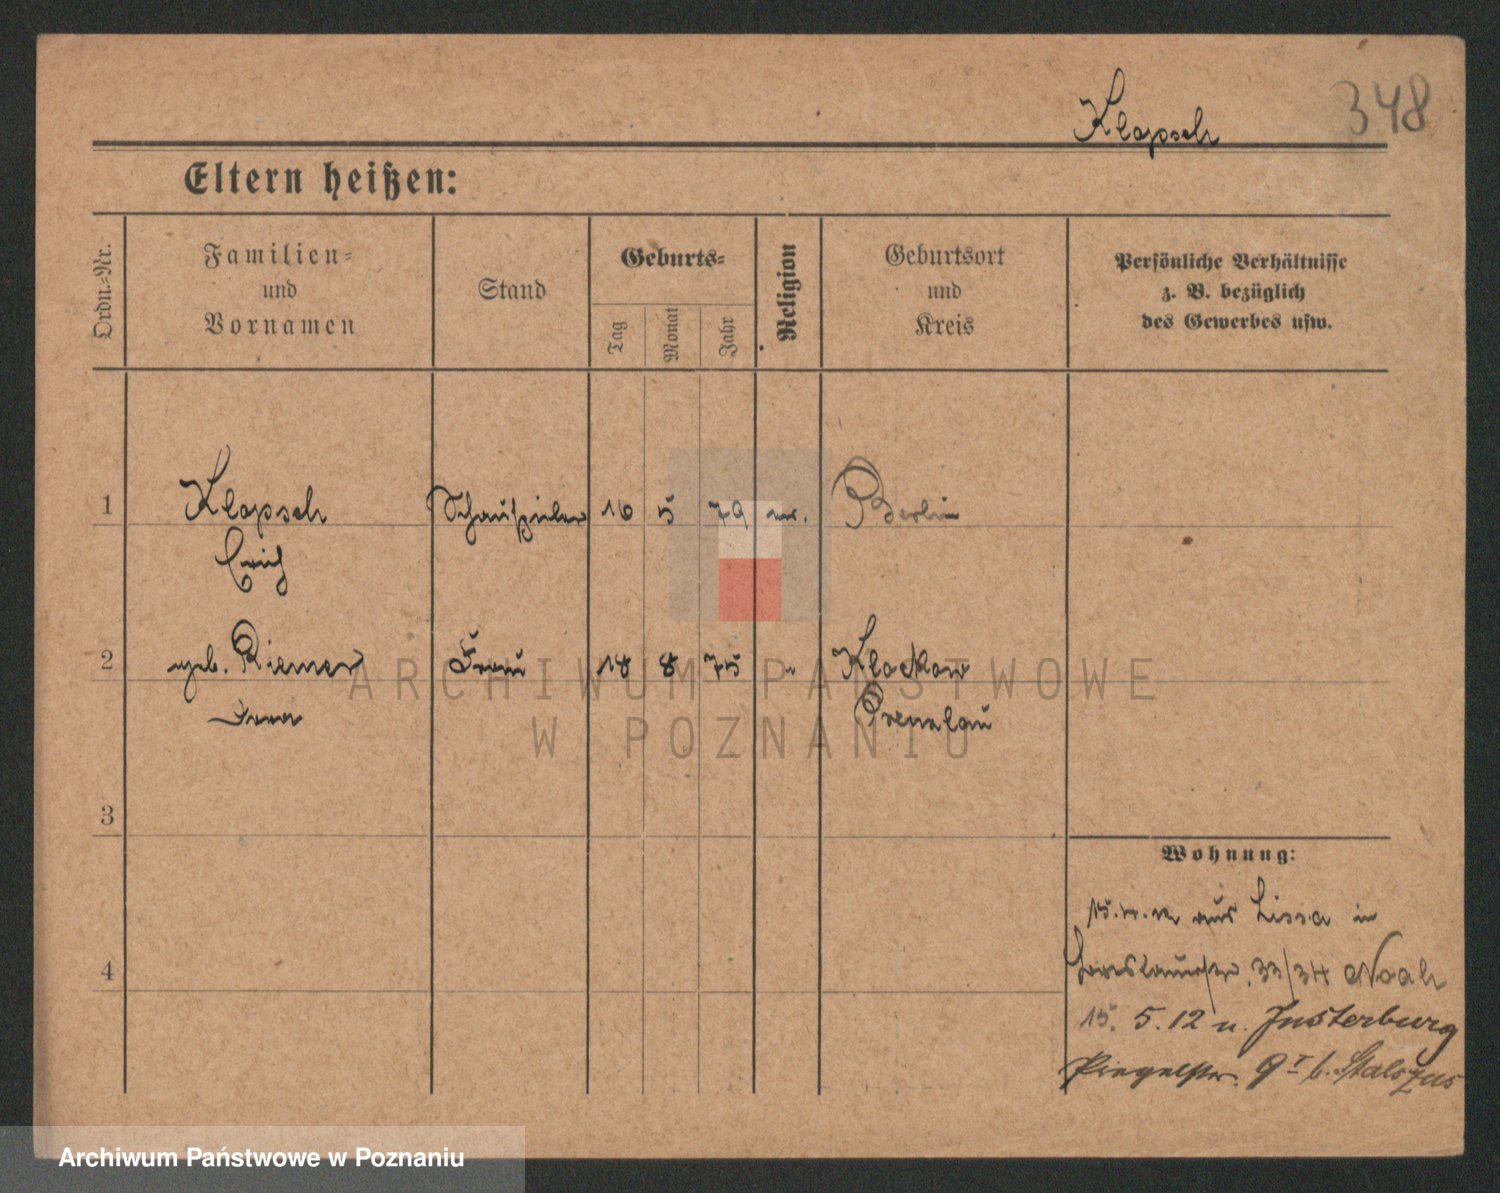 348
Klapsch
Eltern heißen:
Ordn.-Nr.
Familien-
und
Vornamen
Stand
Geburts-
Tag
Monat
Jahr
Religion
Geburtsort
und
Kreis
Persönliche Verhältnisse
z. B. bezüglich
des Gewerbes usw.
1 Klapsch Schauspieler 16 5 79 ev. Berlin
Erich
2 geb. Riemer Frau 18 8 75 " Klockow
Prenzlau
3
4
Wohnung:
15.4.12 aus Lissa in
Breslauerstr. 33/34 Noak
15. 5.12 n. Insterburg
9 I b.
ARCHIWUM PAŃSTWOWE
W POZNANIU
Archiwum Państwowe w Poznaniu